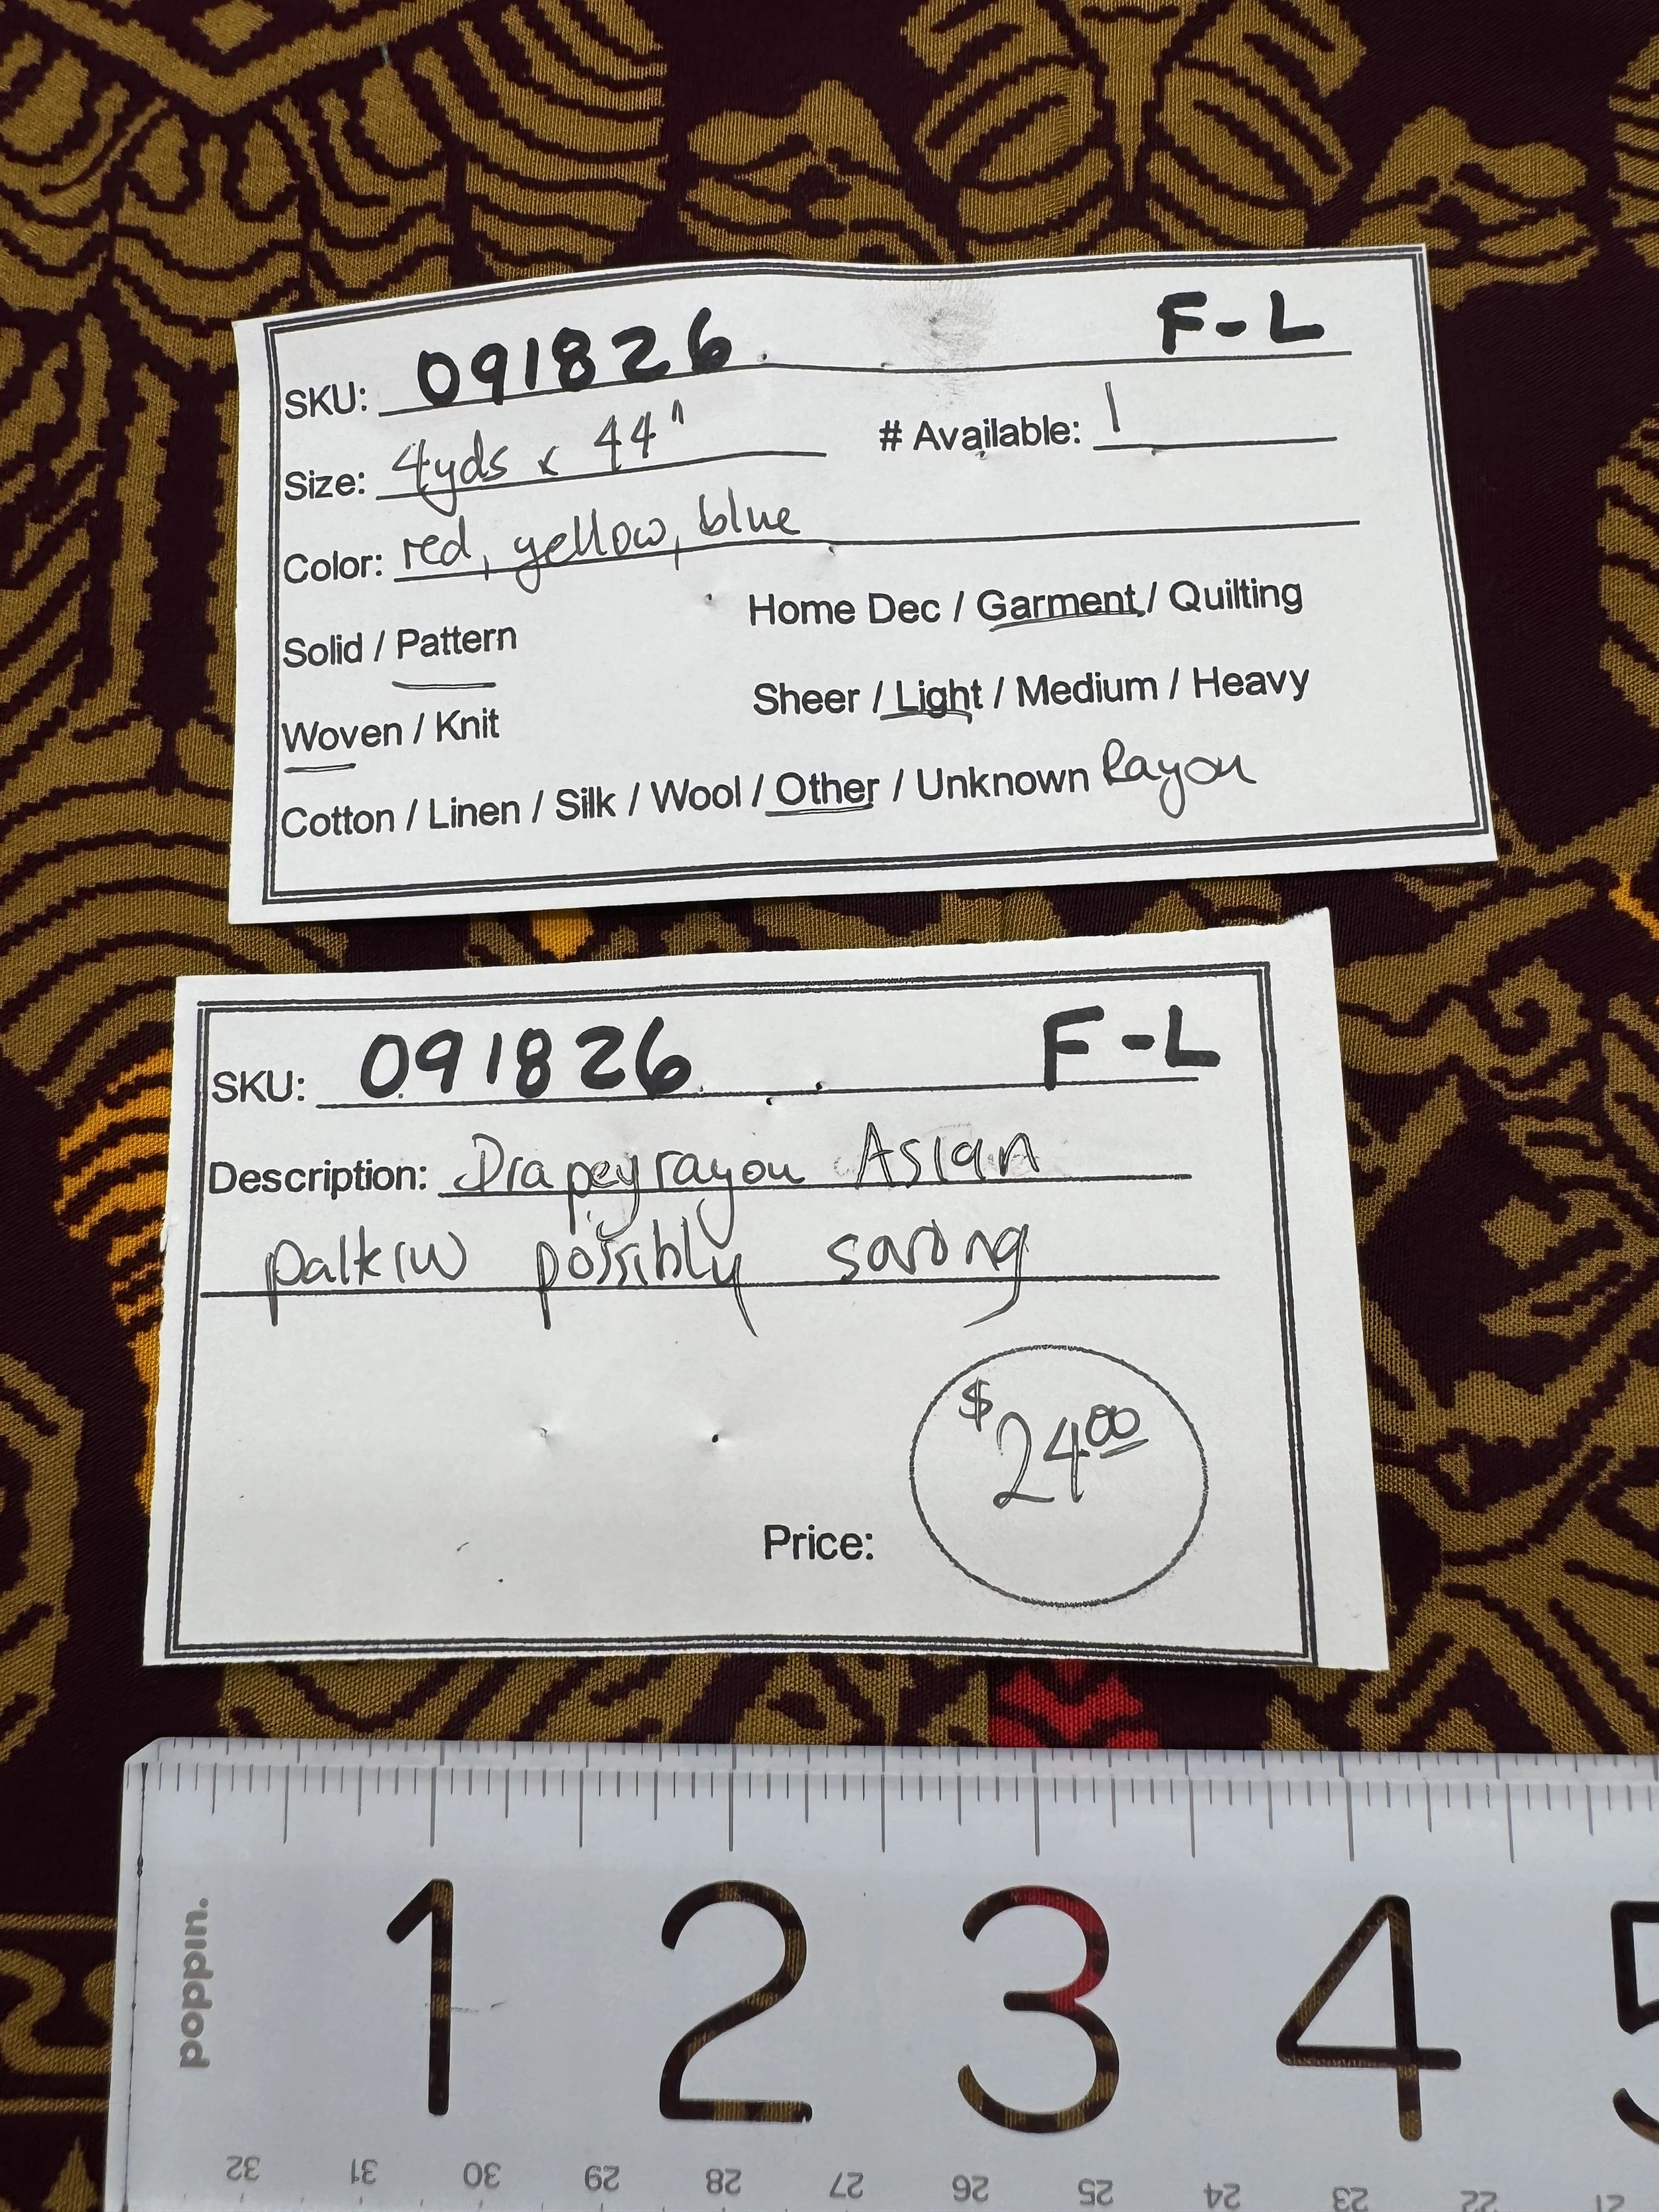 SKU: 091826 F-L
Size: 4yds x 44" # Available: 1
Color: red, yellow, blue
Solid / Pattern Home Dec / Garment / Quilting
Woven / Knit Sheer / Light / Medium / Heavy
Cotton / Linen / Silk / Wool / Other / Unknown Rayon
SKU: 091826 F-L
Description: Drapey rayon Asian
possibly sarong
$2400
Price:
poppin.
1 2 3 4 5
32 31 30 29 28 27 26 25 24 23 22 21